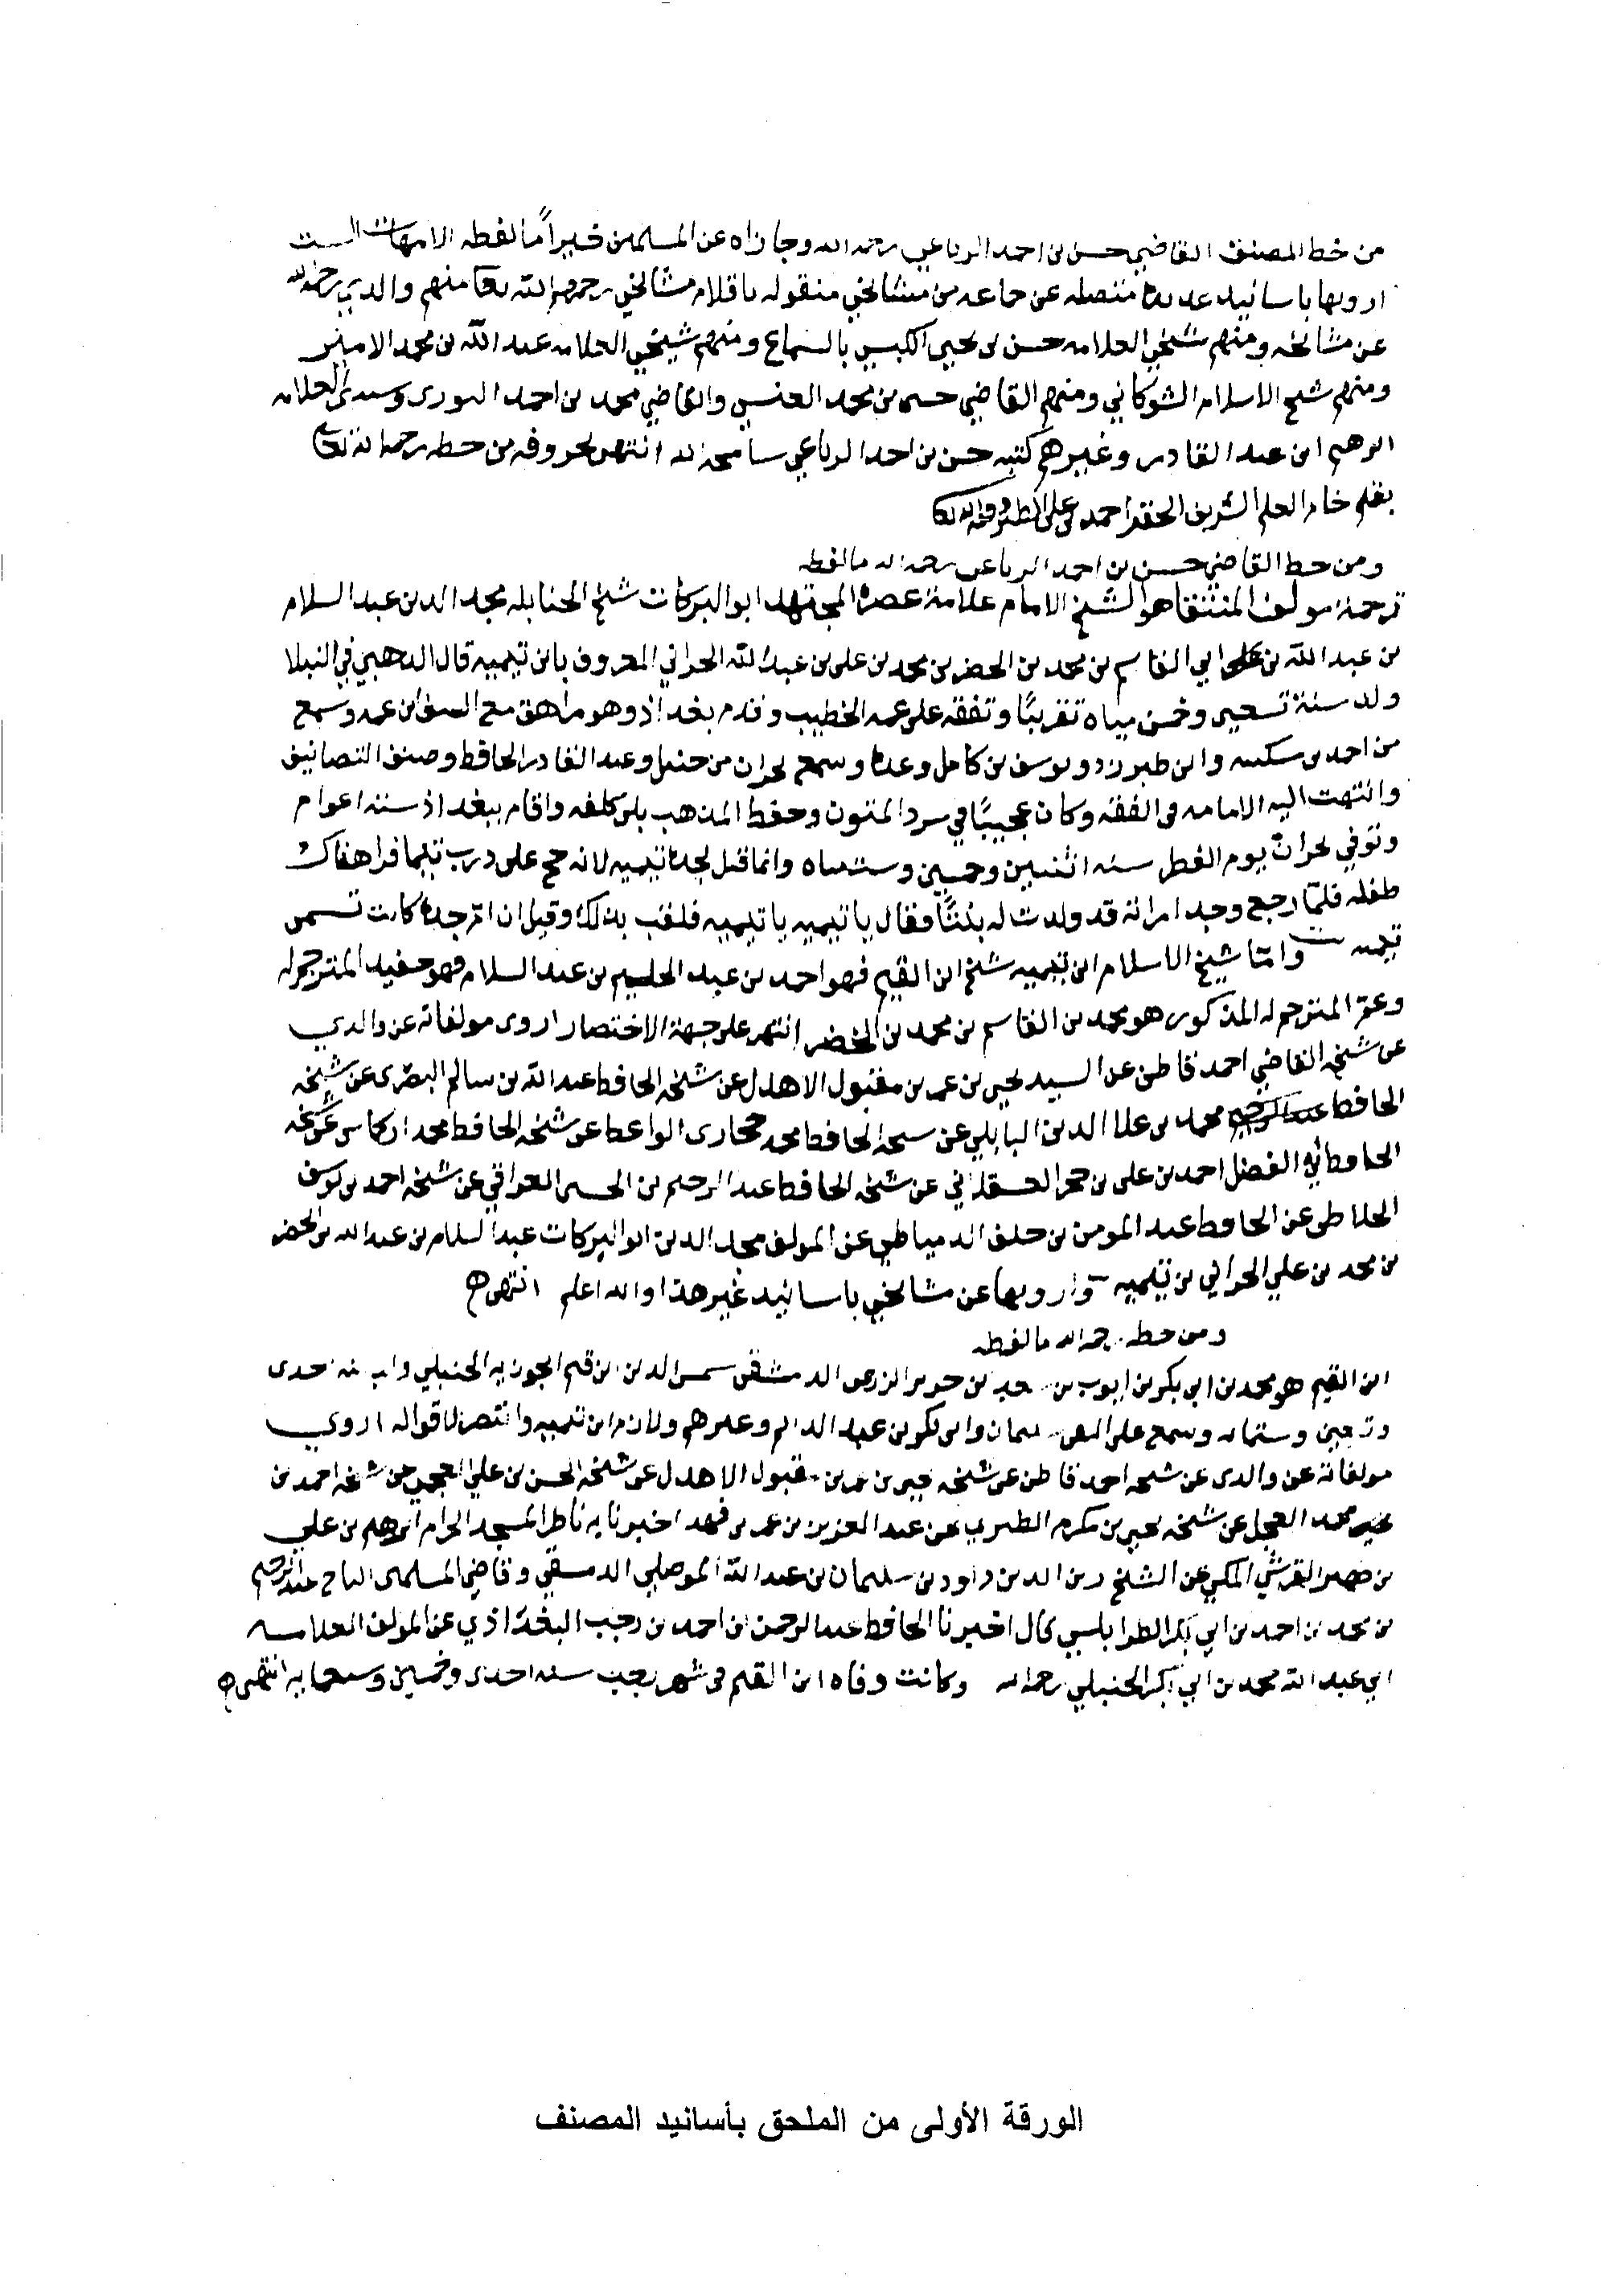 من خط المصنف القاضي حسن بن احمد الرباعي رحمه الله وجازاه عن المسلمين خيراً ما لفظه الامهات الست
ارويها باسانيد عديدة متصله عن جماعه من مشائخي منقوله باقلام مشائخي رحمهم الله تعا منهم والدي رحمه الله
عن مشائخه ومنهم شيخي العلامه حسن بن يحيى الكبسي بالسماع ومنهم شيخي العلامه عبد الله بن محمد الامير
ومنهم شيخ الاسلام الشوكاني ومنهم القاضي حسن بن محمد العنسي والقاضي محمد بن احمد السودي وسيدي العلامه
ابرهيم ابن عبد القادر وغيرهم كتبه حسن بن احمد الرباعي سامحه الله انتهى بحروفه من خطه رحمه الله تعالى
بقلم خادم العلم الشريف الحقير احمد بن علي وفقه الله تعا
ومن خط القاضي حسن بن احمد الرباعي رحمه الله ما لفظه
ترجمة مولف المنتقا هو الشيخ الامام علامة عصره المجتهد ابو البركات شيخ الحنابله مجد الدين عبد السلام
بن عبد الله بن ابي القاسم بن محمد بن الخضر بن محمد بن علي بن عبد الله الحراني المعروف بابن تيميه قال الذهبي في النبلا
ولد سنة تسعين وخمس مياه تقريبًا وتفقه على عمه الخطيب وقدم بغداذ وهو مراهق مع السيف ابن عمه وسمع
من احمد بن سكينه وابن طبرزد ويوسف بن كامل وعدة وسمع بحران من حنبل وعبد القادر الحافظ وصنف التصانيف
وانتهت اليه الامامه في الفقه وكان عجيبًا في سرد المتون وحفظ المذهب بلا كلفه واقام ببغداذ ستة اعوام
وتوفي بحران يوم الفطر سنه اثنين وخمسين وستمياه وانما قيل لجده تيميه لانه حج على درب تيما فراا هناك
طفله فلمّا رجع وجد امراته قد ولدت له بنتًا فقال يا تيميه يا تيميه فلقب بذلك وقيل ان امّ جده كانت تسمى
تيميه وامّا شيخ الاسلام ابن تيميه شيخ ابن القيم فهو احمد بن عبد الحليم بن عبد السلام فهو حفيد المترجم له
وعم المترجم له المذكور هو محمد بن القاسم بن محمد بن الخضر انتهى على جهة الاختصار اروي مولفاته عن والدي
عن شيخه القاضي احمد قاطن عن السيد يحيى بن عمر بن مقبول الاهدل عن شيخه الحافظ عبد الله بن سالم البصري عن شيخه
الحافظ محمد بن علا الدين البابلي عن شيخه الحافظ محمد حجازي الواعظ عن شيخه الحافظ محمد اركماس عن شيخه
الحافظ ابي الفضل احمد بن علي بن حجر العسقلاني عن شيخه الحافظ عبد الرحيم بن الحسين العراقي عن شيخه احمد بن يوسف
الخلاطي عن الحافظ عبد المومن بن خلف الدمياطي عن المولف مجد الدين ابو البركات عبد السلام بن عبد الله بن الخضر
بن محمد بن علي الحراني بن تيميه وارويها عن مشائخي باسانيد غير هذا والله اعلم انتهى
ومن خطه رحمه الله ما لفظه
ابن القيم هو محمد بن ابي بكر بن ايوب بن سعد بن حريز الزرعي الدمشقي شمس الدين ابن قيم الجوزيه الحنبلي ولد سنه احدى
وتسعين وستمايه وسمع على التقي سليمان وابي بكر بن عبد الدايم وغيرهم ولازم ابن تيميه وانتصر لاقواله اروي
مولفاته عن والدي عن شيخه احمد قاطن عن شيخه يحيى بن عمر بن مقبول الاهدل عن شيخه الحسن بن علي العجيمي عن شيخه احمد بن
محمد العجل عن شيخه يحيى بن مكرم الطبري عن عبد العزيز بن عمر بن فهد اخبرنا به ناظر المسجد الحرام ابرهيم بن علي
بن ظهيره القرشي المكي عن الشيخ زين الدين داود بن سليمان بن عبد الله الموصلي الدمشقي وقاضي المسلمين التاج عبد الرحيم
بن محمد بن احمد بن ابي بكر الطرابلسي قال اخبرنا الحافظ عبد الرحمن بن احمد بن رجب البغداذي عن المولف العلامه
ابي عبد الله محمد بن ابي بكر الحنبلي رحمه الله وكانت وفاه ابن القيم في شهر رجب سنه احدى وخمسين وسبعمايه انتهى
الورقة الأولى من الملحق بأسانيد المصنف